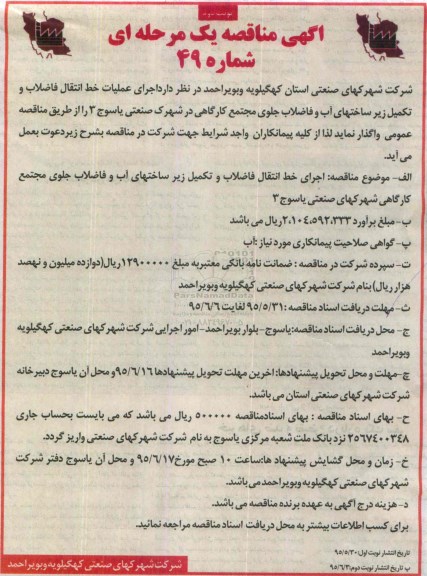 آگهی مناقصه یک مرحله ای
شماره ۴۹
شرکت شهرکهای صنعتی استان کهگیلویه وبویراحمد در نظر دارداجرای عملیات خط انتقال فاضلاب و
تکمیل زیر ساختهای آب و فاضلاب جلوی مجتمع کارگاهی در شهرک صنعتی یاسوج ۳ را از طریق مناقصه
عمومی واگذار نماید لذا از کلیه پیمانکاران واجد شرایط جهت شرکت در مناقصه بشرح زیردعوت بعمل
می آید.
الف- موضوع مناقصه: اجرای خط انتقال فاضلاب و تکمیل زیر ساختهای آب و فاضلاب جلوی مجتمع
کارگاهی شهرکهای صنعتی یاسوج ۳
ب- مبلغ برآورد ۲،۱۰۴،۵۹۲،۳۳۳ ریال می باشد
پ- گواهی صلاحیت پیمانکاری مورد نیاز :آب
ت- سپرده شرکت در مناقصه : ضمانت نامه بانکی معتبربه مبلغ ۱۲۹۰۰۰۰۰ریال(دوازده میلیون و نهصد
هزار ریال) بنام شرکت شهرکهای صنعتی کهگیلویه وبویراحمد
ث- مهلت دریافت اسناد مناقصه :۹۵/۵/۳۱ لغایت ۹۵/۶/۶
ج- محل دریافت اسناد مناقصه:یاسوج-بلوار بویراحمد-امور اجرایی شرکت شهرکهای صنعتی کهگیلویه
وبویراحمد
چ-مهلت و محل تحویل پیشنهادها: اخرین مهلت تحویل پیشنهادها ۹۵/۶/۱۶و محل آن یاسوج دبیرخانه
شرکت شهرکهای صنعتی استان می باشد.
ح- بهای اسناد مناقصه : بهای اسنادمناقصه ۵۰۰۰۰۰ ریال می باشد که می بایست بحساب جاری
۲۵۶۷۴۰۰۳۴۸ نزد بانک ملت شعبه مرکزی یاسوج به نام شرکت شهرکهای صنعتی واریز گردد.
خ- زمان و محل گشایش پیشنهاد ها:ساعت ۱۰ صبح مورخ۹۵/۶/۱۷ و محل آن یاسوج دفتر شرکت
شهرکهای صنعتی کهگیلویه وبویراحمدمی باشد.
د- هزینه درج آگهی به عهده برنده مناقصه می باشد.
برای کسب اطلاعات بیشتر به محل دریافت اسناد مناقصه مراجعه نمائید.
تاریخ انتشار نوبت اول:۹۵/۵/۳۰
پ تاریخ انتشار نوبت دوم:۹۵/۶/۳
شرکت شهرکهای صنعتی کهگیلویه وبویراحمد